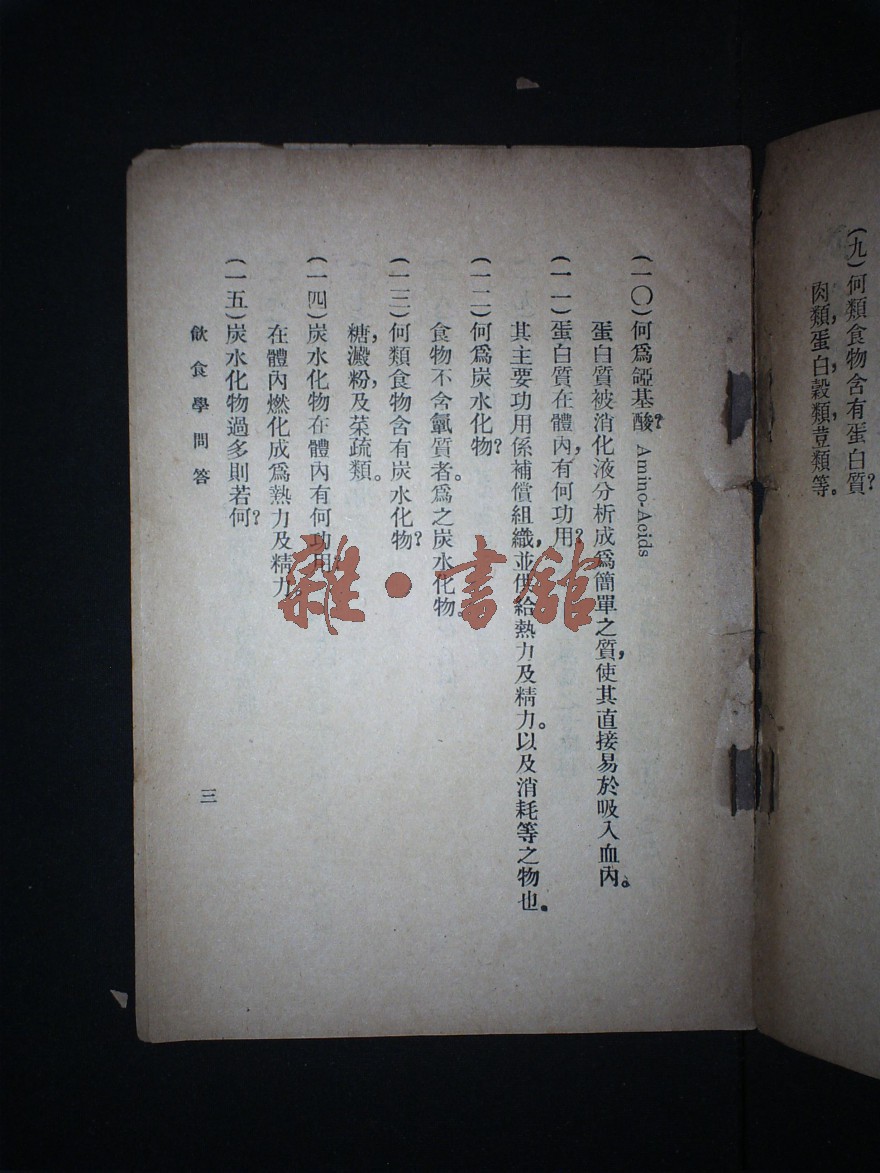 (九)何類食物含有蛋白質?
肉類,蛋白,穀類荳類等。
(一〇)何爲䤳基酸? Amino-Acids
蛋白質被消化液分析成爲簡單之質,使其直接易於吸入血內。
(一一)蛋白質在體內,有何功用?
其主要功用係補償組織,並供給熱力及精力。以及消耗等之物也.
(一二)何爲炭水化物?
食物不含氮質者。爲之炭水化物。
(一三)何類食物含有炭水化物?
糖,澱粉,及菜疏類。
(一四)炭水化物在體內有何功用?
在體內燃化成爲熱力及精力。
(一五)炭水化物過多則若何?
飲食學問答
三
雜·書館